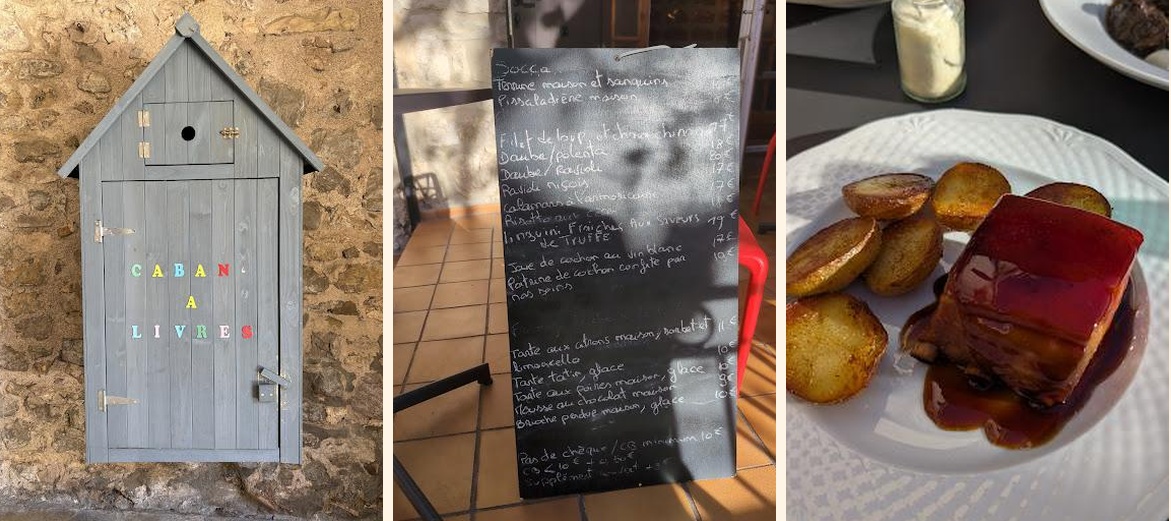 CABAN
A
LIVRES
Socca
Terrine maison et sanguins
Pissaladière maison
Filet de loup, et
Daube/polenta
Daube/Ravioli
Ravioli niçois 17€
Calamars à l'armoricaine 17€
Risotto aux
linguini Fraiches Aux Saveurs 19€
de TRUFFE
Joue de cochon au vin blanc 17€
Poitrine de cochon confite par 19€
nos soins
Tarte aux citrons maison, sorbet et 11€
limoncello
Tarte tatin, glace 10€
Tarte aux poires maison, glace
Mousse au chocolat maison
Brioche perdue maison, glace 10€
Pas de chèque / CB minimum 10€
CB < 10€ +
Supplément